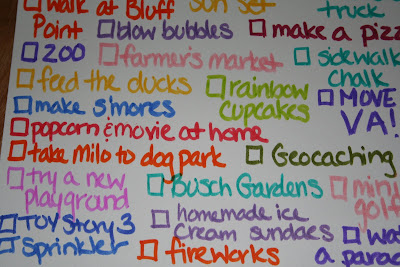 walk at Bluff Point
sun set
truck
blow bubbles
make a pizz
ZOO
farmer's market
sidewalk chalk
feed the ducks
rainbow cupcakes
MOVE VA!
make s'mores
popcorn & movie at home
take Milo to dog park
Geocaching
try a new playground
Busch Gardens
mini golf
TOY Story 3
homemade ice cream sundaes
Sprinkler
fireworks
wat
a parad